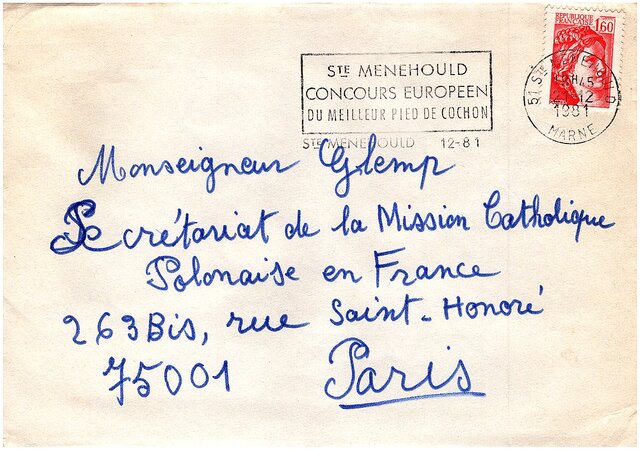 RÉPUBLIQUE
FRANÇAISE
1,60
STE MENEHOULD
CONCOURS EUROPEEN
DU MEILLEUR PIED DE COCHON
STE MENEHOULD 12-81
51 STE
12
1981
MARNE
Monseigneur Glemp
Secrétariat de la Mission Catholique
Polonaise en France
263Bis, rue Saint-Honoré
75001 Paris